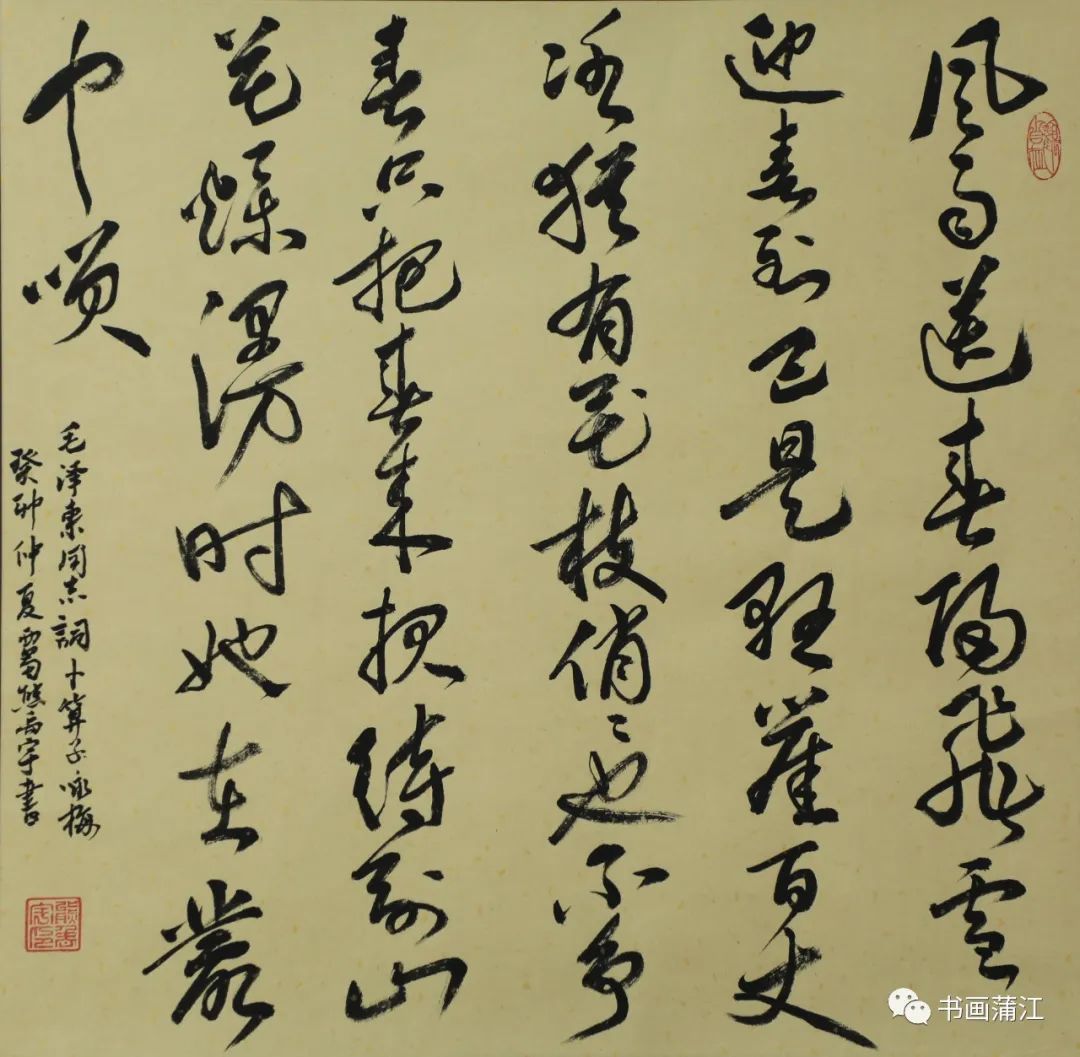 风雨送春归飛雪
迎春到已是懸崖百丈
冰猶有花枝俏〻也不争
春只把春来报待到山
花爛漫时她在叢
中咲
毛泽東同志詞卜算子咏梅
癸卯仲夏蜀熊宇書
书画蒲江